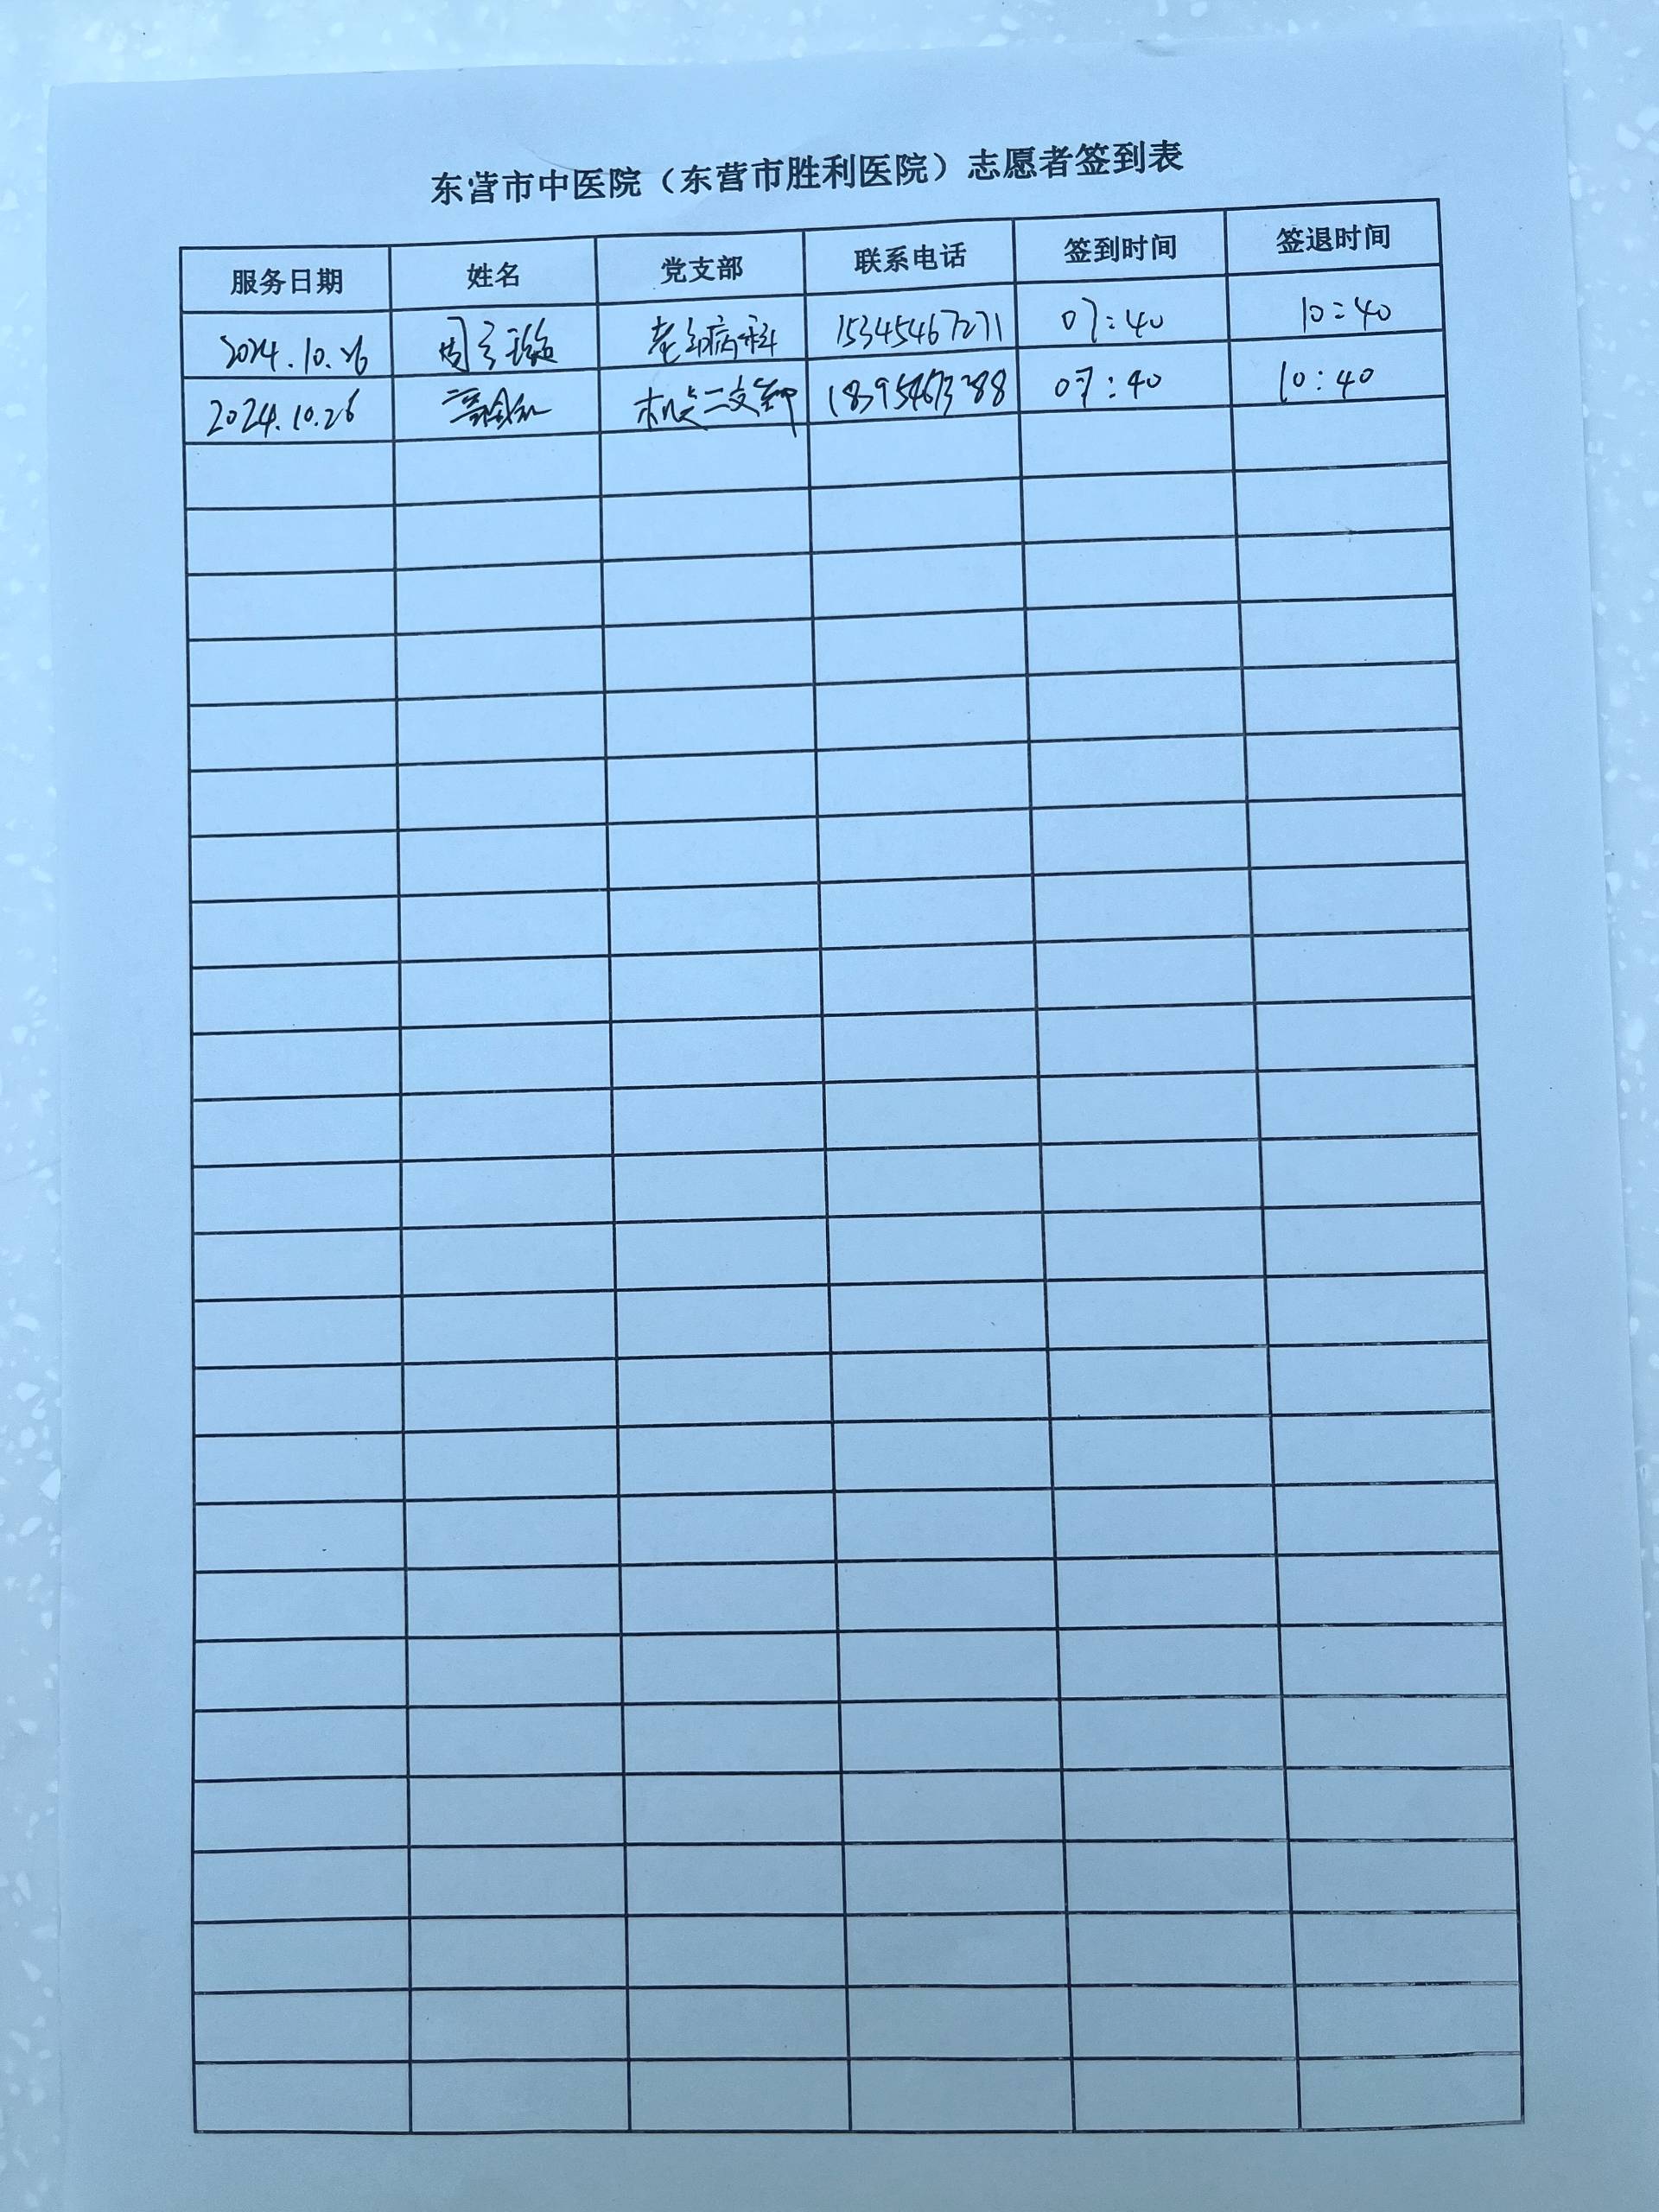 东营市中医院（东营市胜利医院）志愿者签到表
服务日期 姓名 党支部 联系电话 签到时间 签退时间
2024.10.26 周 老年病科 15345467271 07:40 10:40
2024.10.26 机关二支部 18395467388 07:40 10:40